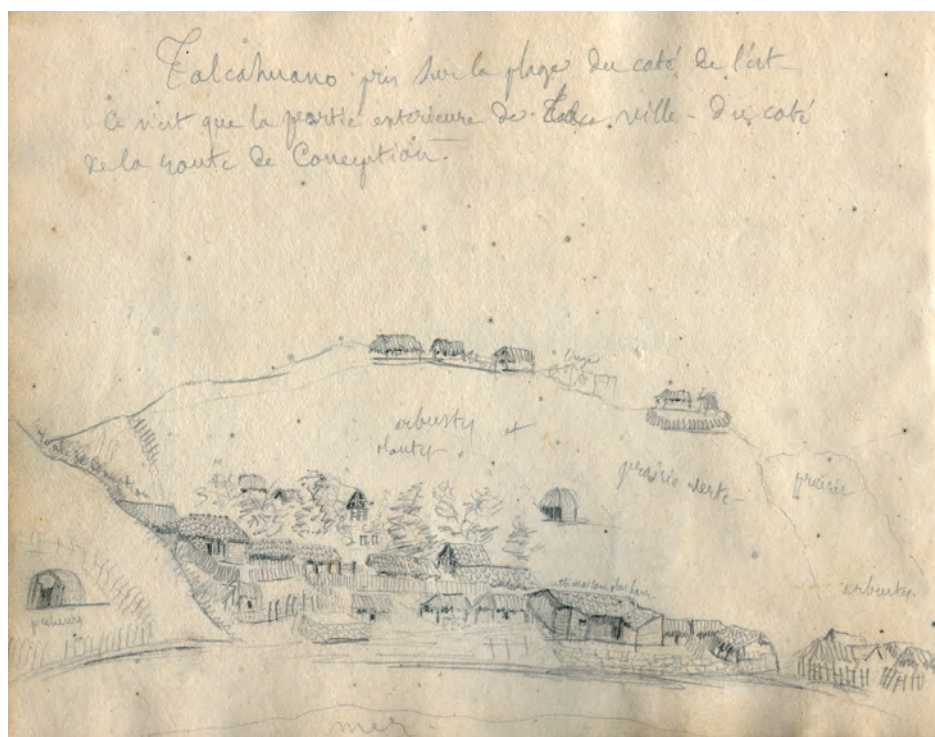 Talcahuano pris sur la plage du coté de l'est
Ce n'est que la partie exterieure de ville - du coté
de la route de Conception.
linge
arbustes et
plantes
prairie verte
prairie
route de Conception
arbustes
pecheurs
mer